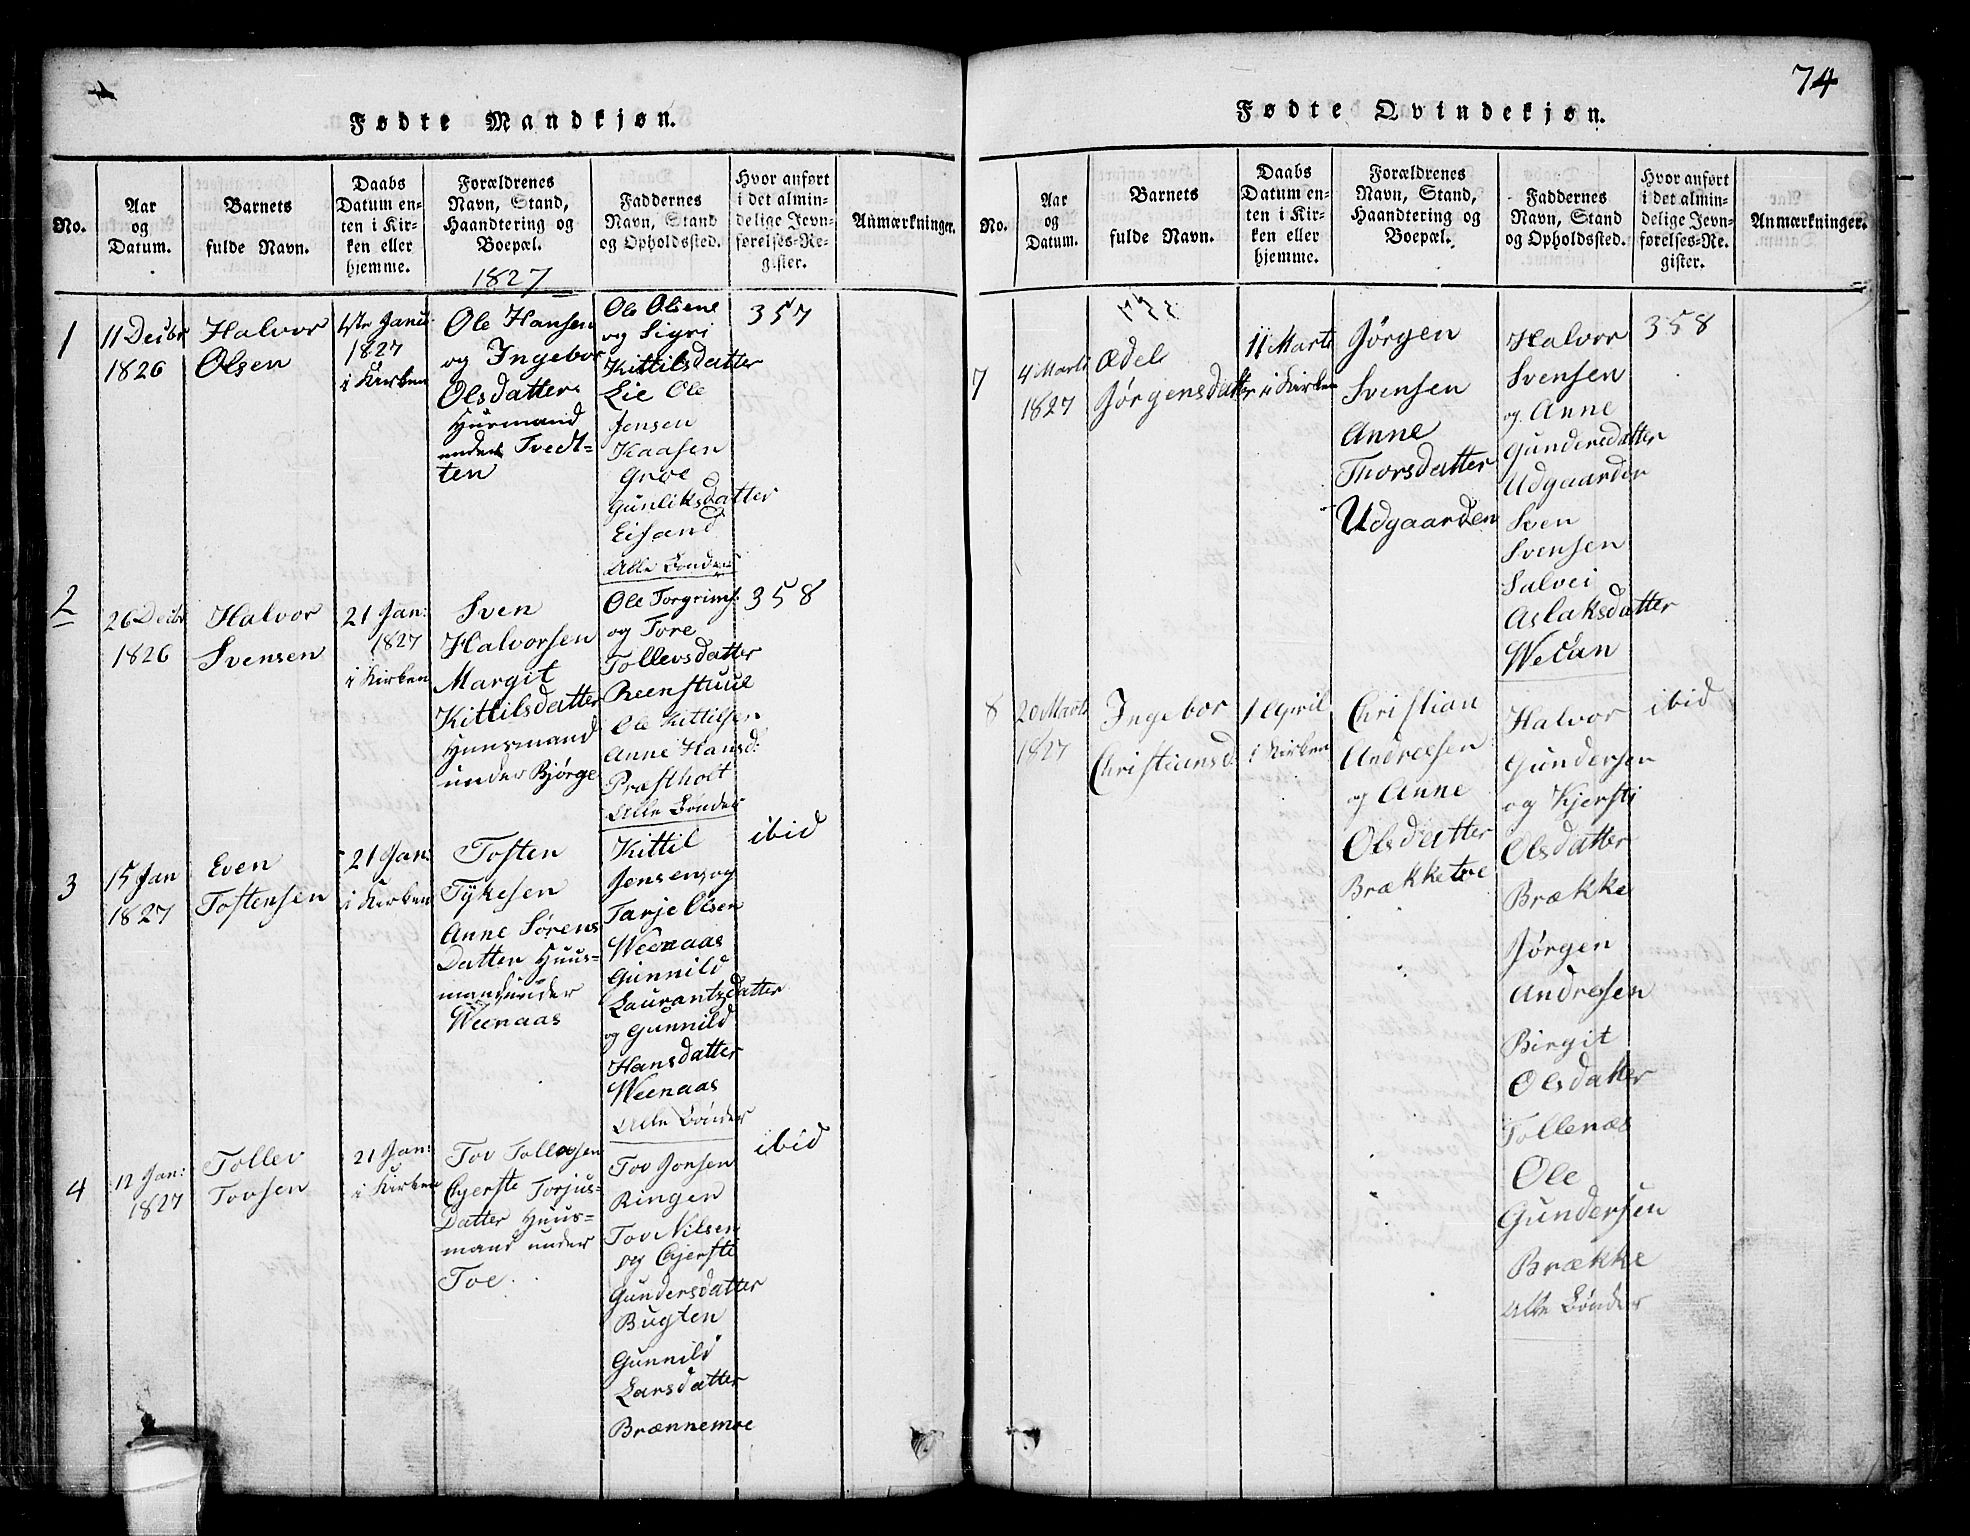 74
Fødte Mandkjøn.
No.
Aar
og
Datum.
Barnets
fulde Navn.
Daabs
Datum en-
ten i Kir-
ken eller
hjemme.
Forældrenes
Navn, Stand,
Haandtering og
Boepæl.
Faddernes
Navn, Stand
og Opholdssted.
Hvor anført
i det almin-
delige Jevn-
førelses-Re-
gister.
Anmærkninger.
1827
1
11 Decbr
1826
Halvor
Olsen
1ste Janu:
1827
i Kirken
Ole Hansen
og Ingebor
Olsdatter
Husmand
under Tvedt-
ten
Ole Olsene
og Sigri
Kittilsdatter
Lie Ole
Jensen
Kaasen
Groe
Gunliksdatter
Eisand
Alle Bønder
357
2
26 Decbr
1826
Halvor
Svensen
21 Jan:
1827
i Kirken
Sven
Halvorsen
Margit
Kittilsdatter
Huusmand
under Bjørge
Ole Torgrims:
og Tore
Tollevsdatter
Reenstuul
Ole Kittilsen
Anne Hansd:
Præstholt
Alle Bønder
358
3
15 Jan
1827
Even
Tostensen
21 Jan:
i Kirken
Tosten
Tykesen
Anne Sørens
Datter Huus-
mand under
Weenaas
Kittil
Jensen og
Tarje Olsen
Weenaas
Gunnild
Laurantzdatter
og Gunnild
Hansdatter
Weenaas
Alle Bønder
ibid
4
12 Jan:
1827
Tollev
Tovsen
21 Jan:
i Kirken
Tov Tollevsen
Gjerste Torjus-
Datter Huus-
mand under
Toe
Tov Jonsen
Ringen
Tov Nilsen
og Gjersti
Gundersdatter
Bugten
Gunnild
Larsdatter
Brænnemoe
ibid
Fødte Qvindekjøn.
No.
Aar
og
Datum.
Barnets
fulde Navn.
Daabs
Datum en-
ten i Kir-
ken eller
hjemme.
Forældrenes
Navn, Stand,
Haandtering og
Boepæl.
Faddernes
Navn, Stand
og Opholdssted.
Hvor anført
i det almin-
delige Jevn-
førelses-Re-
gister.
Anmærkninger.
7
4 Marti
1827
Ædel
Jørgensdatter
11 Marti
i Kirken
Jørgen
Svensen
Anne
Thorsdatter
Udgaarden
Halvor
Svensen
og Anne
Gundersdatter
Udgaarden
Sven
Svensen
Salvei
Aslaksdatter
Wecan
358
8
20 Marti
1827
Ingebor
Christiansd:
1 April
i Kirken
Christian
Andresen
og Anne
Olsdatter
Brækketoe
Halvor
Gundersen
og Kjersti
Olsdatter
Brække
Jørgen
Andresen
Birgit
Olsdatter
Tollenæs
Ole
Gundersen
Brække
Alle Bønder
ibid